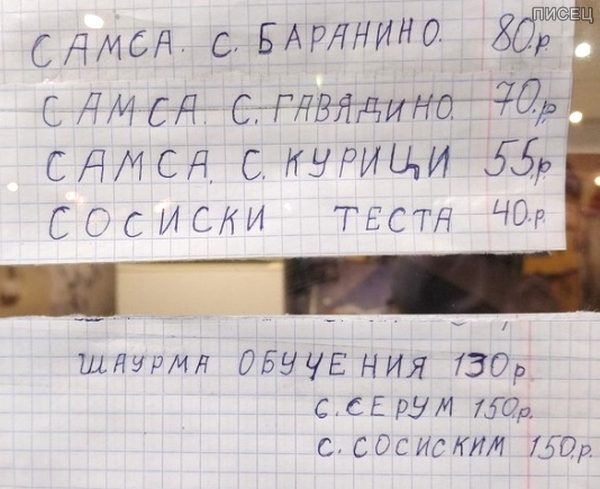 ПИСЕЦ
САМСА. С. БАРАНИНО. 80.р.
САМСА. С. ГАВЯДИНО. 70.р
САМСА. С. КУРИЦИ 55р.
СОСИСКИ ТЕСТА 40.р.
ШАУРМА ОБУЧЕНИЯ 130р.
С. СЕРУМ 150.р.
С. СОСИСКИМ 150.р.